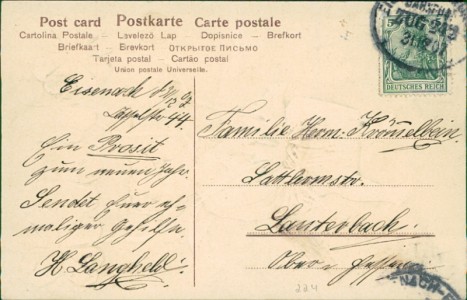 Post card Postkarte Carte postale
Cartolina Postale – Levelező Lap – Dopisnice – Brefkort
Briefkaart – Brevkort – ОТКРЫТОЕ ПИСЬМО
Tarjeta postal – Cartão postal
Union postale Universelle.
ZUG 242
DEUTSCHES REICH
Eisenach
Ein Prosit
zum neuen Jahr.
Sendet Euer eh-
maliger Gehilfe
H. Langheld.
Familie Herm.
Lauterbach
Ober-Hessen
224